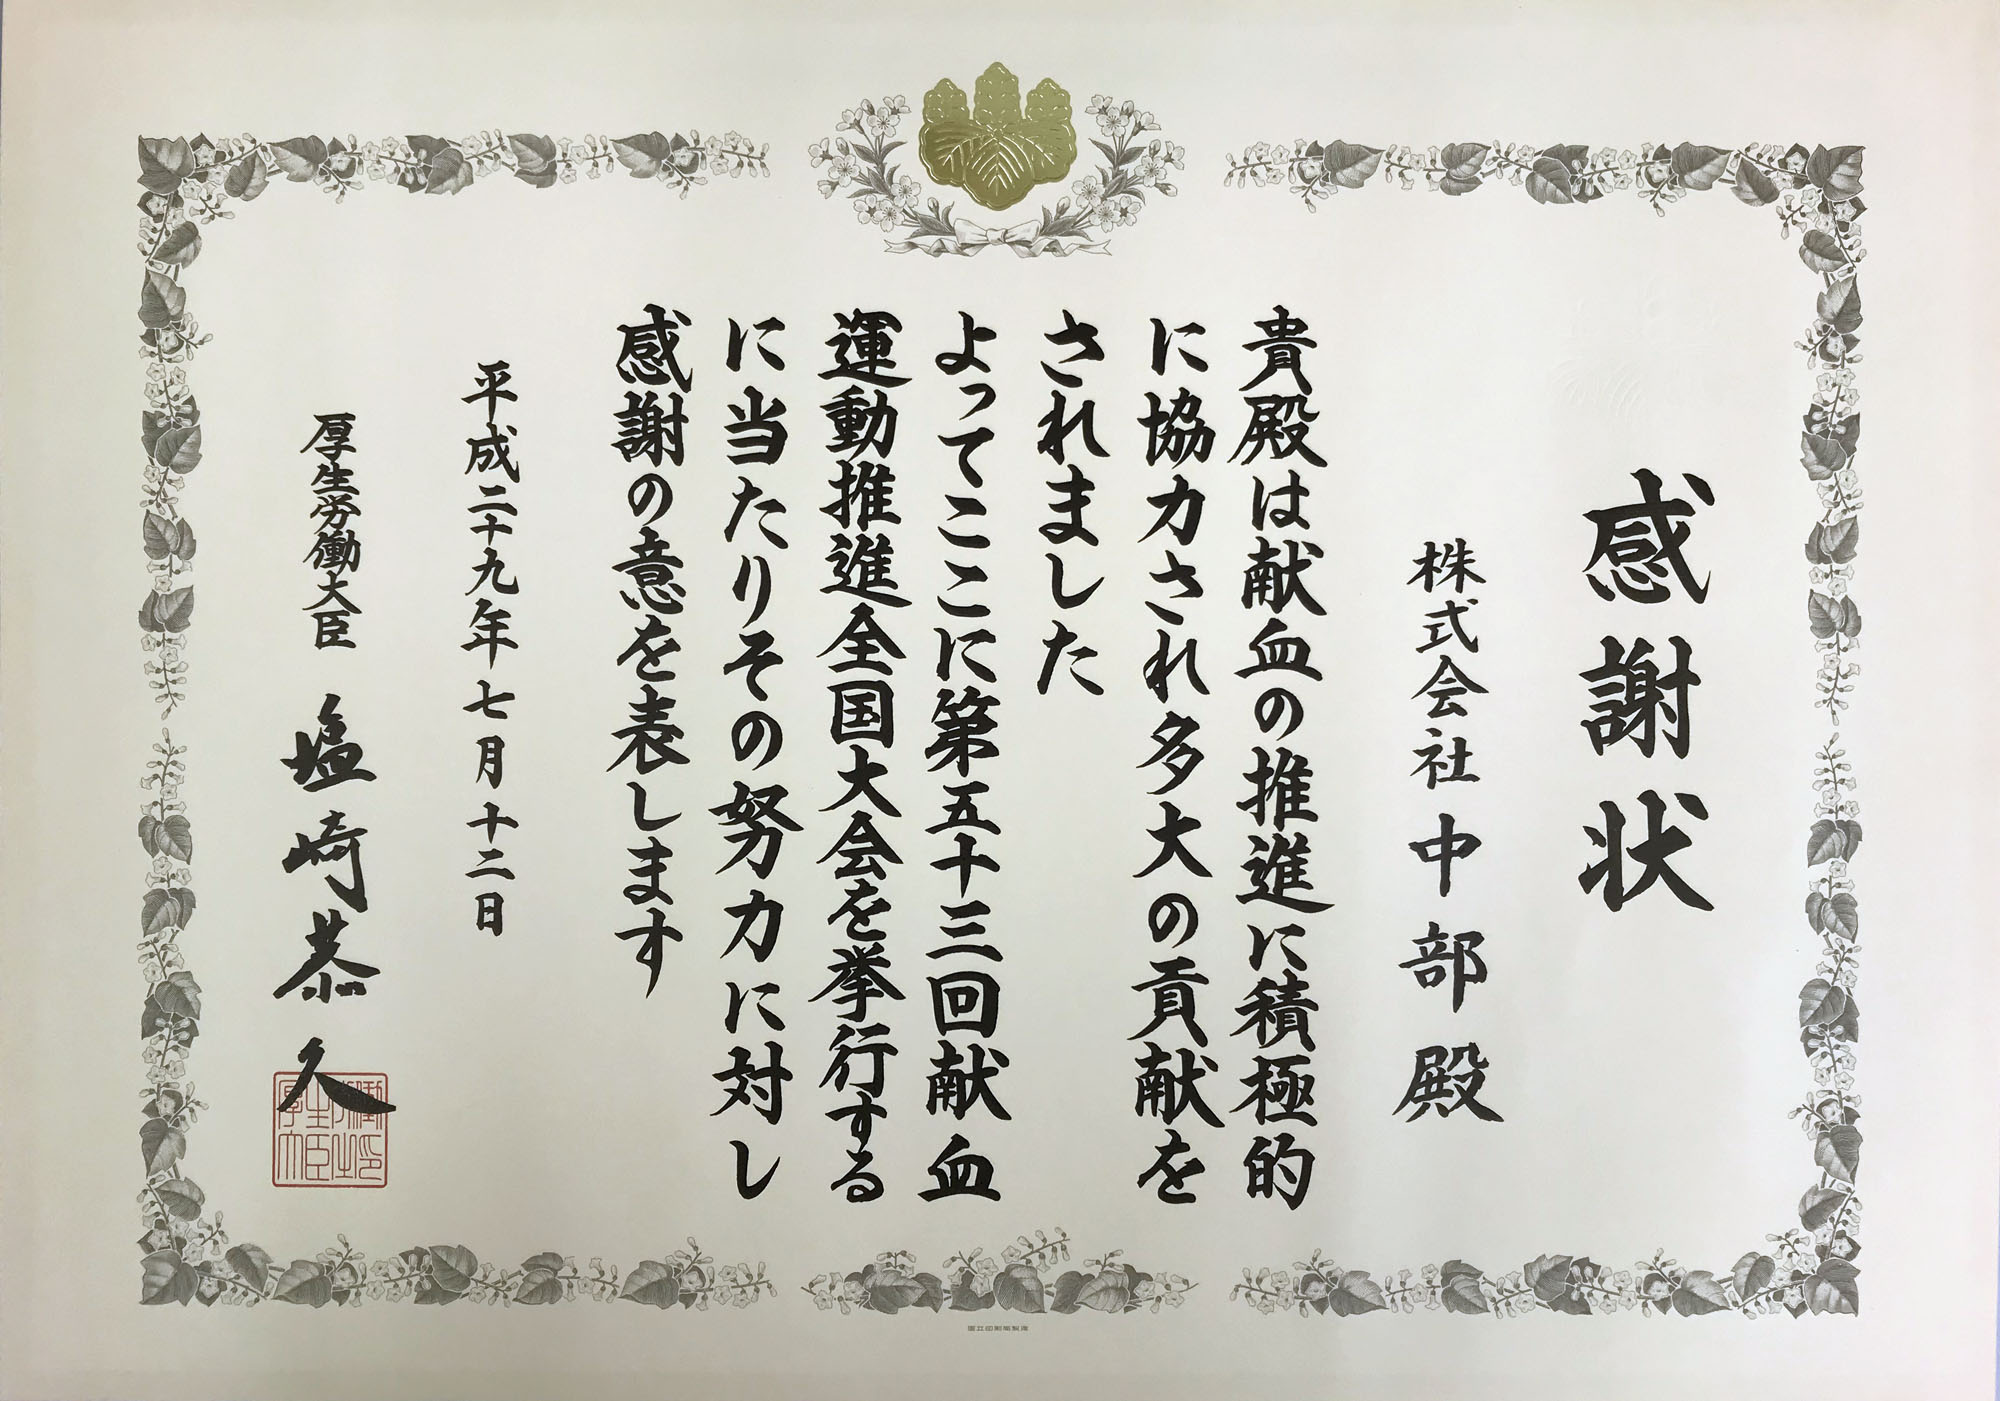 感謝状
株式会社中部殿
貴殿は献血の推進に積極的
に協力され多大の貢献を
されました
よってここに第五十三回献血
運動推進全国大会を挙行する
に当たりその努力に対し
感謝の意を表します
平成二十九年七月十二日
厚生労働大臣 塩崎恭久
厚生労働大臣之印
国立印刷局製造